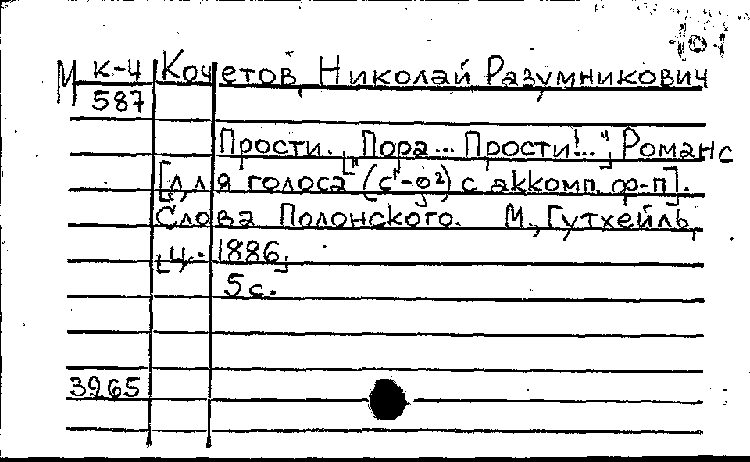 М К-4 Кочетов, Николай Разумникович
587
Прости. „Пора... Прости!..", Романс
[для голоса (c¹-g²) с аккомп. ф-п].
Слова Полонского. М., Гутхейль,
[ц. 1886].
5 с.
3965